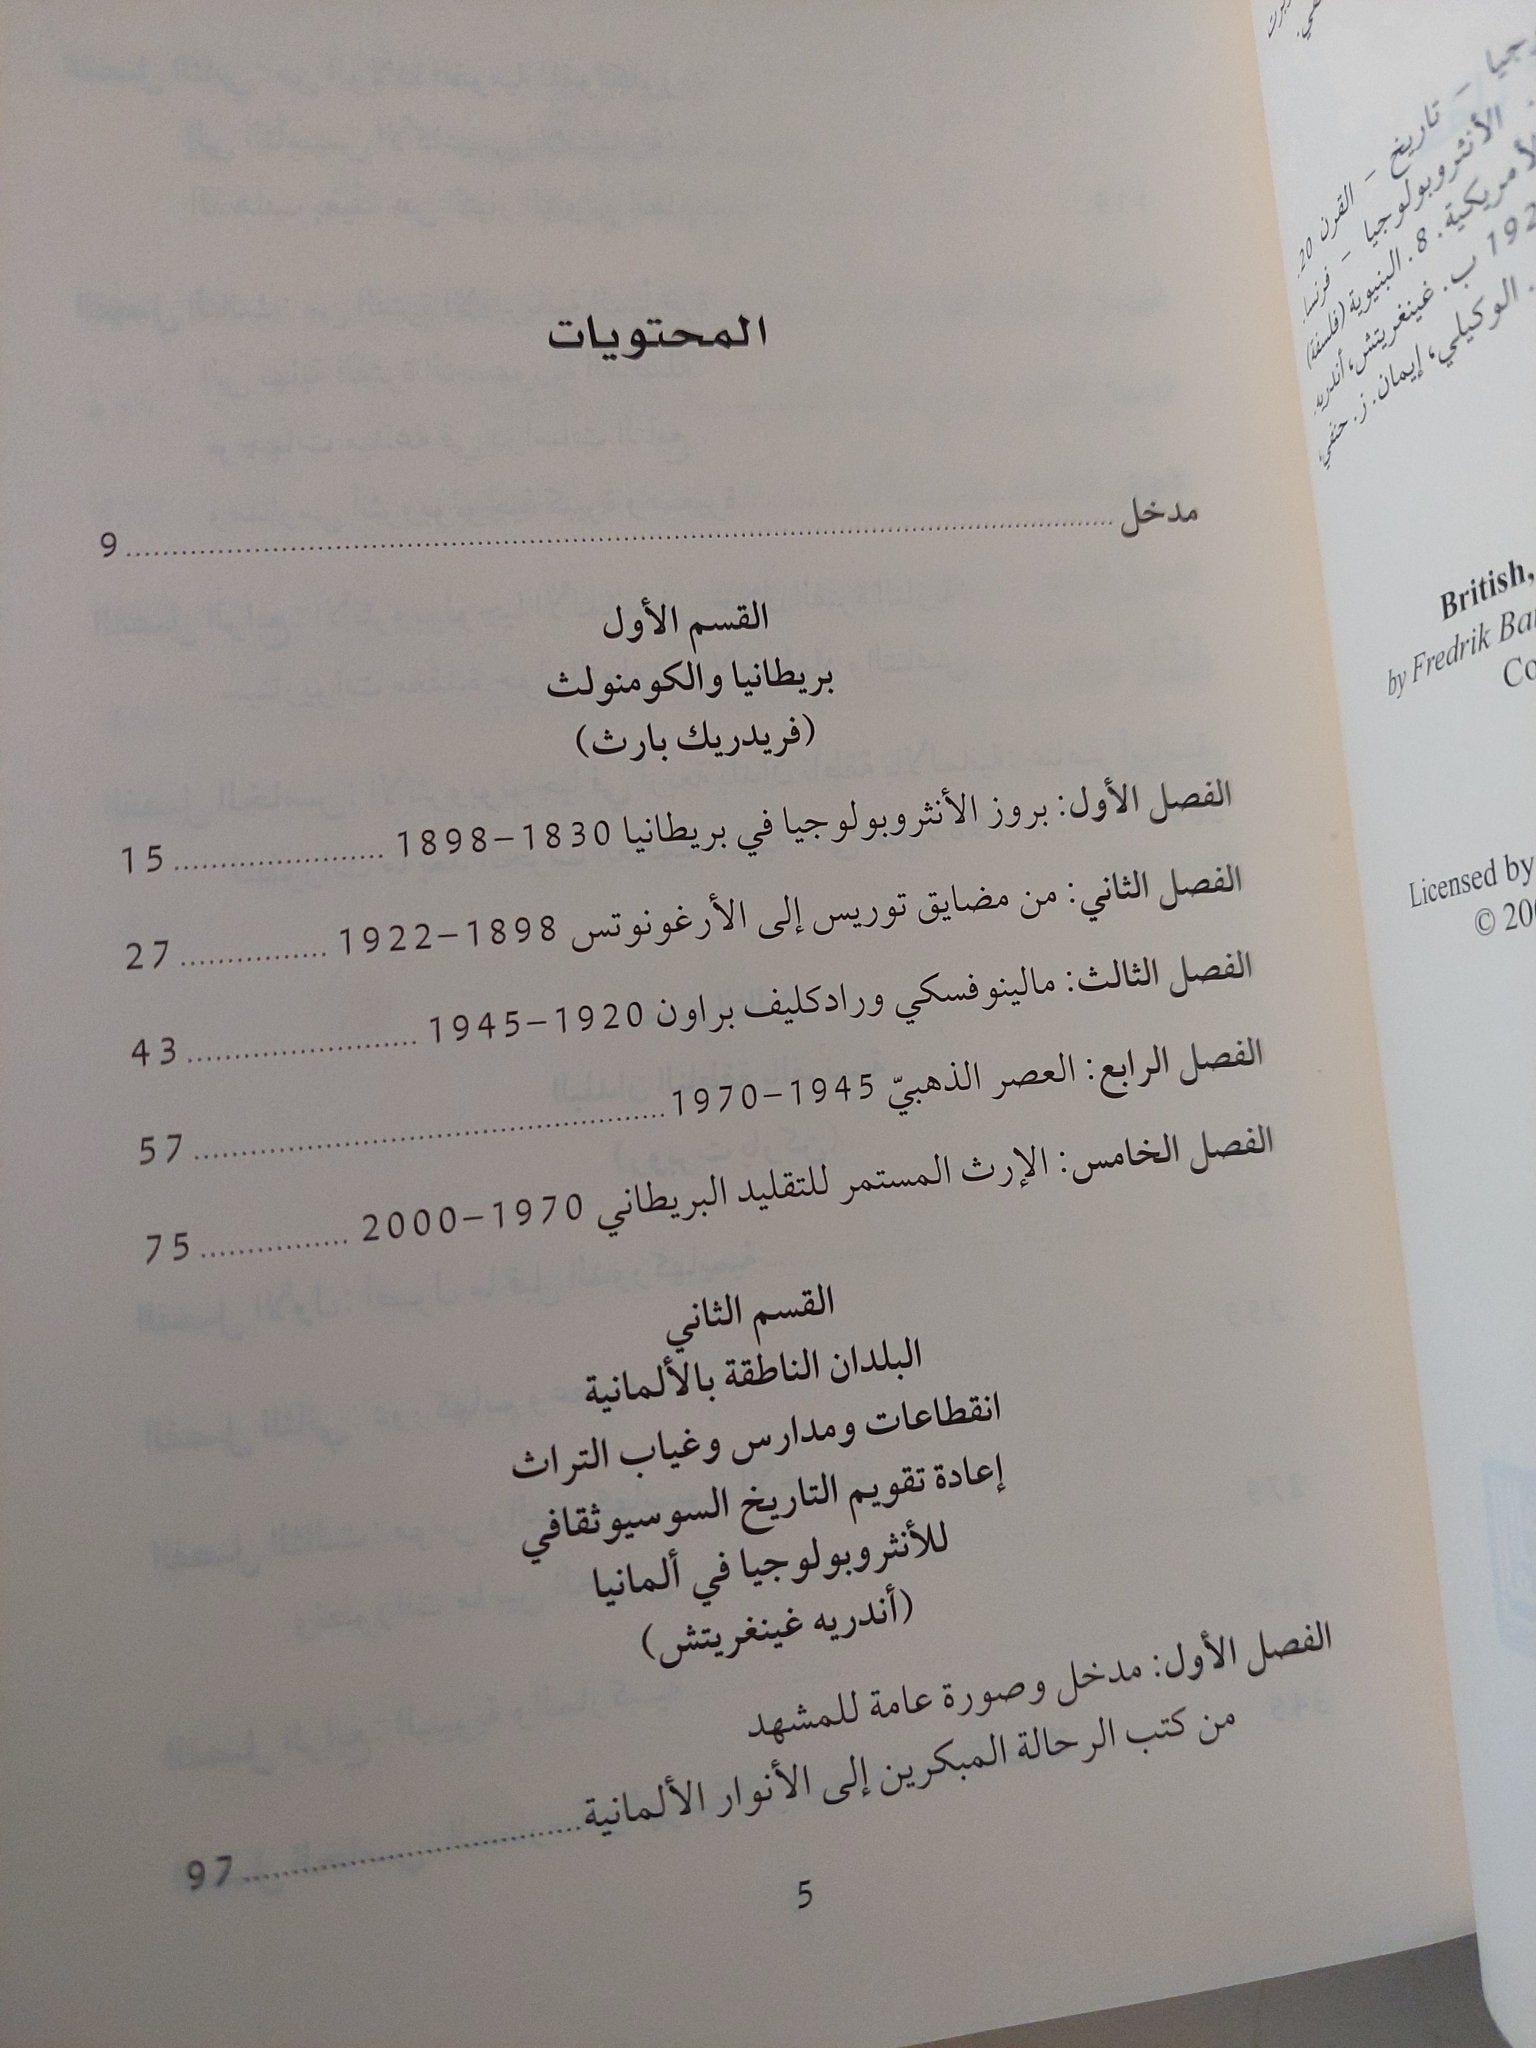 المحتويات
مدخل ... 9
القسم الأول
بريطانيا والكومنولث
(فريدريك بارث)
الفصل الأول: بروز الأنثروبولوجيا في بريطانيا 1830–1898 ... 15
الفصل الثاني: من مضايق توريس إلى الأرغونوتس 1898–1922 ... 27
الفصل الثالث: مالينوفسكي ورادكليف براون 1920–1945 ... 43
الفصل الرابع: العصر الذهبيّ 1945–1970 ... 57
الفصل الخامس: الإرث المستمر للتقليد البريطاني 1970–2000 ... 75
القسم الثاني
البلدان الناطقة بالألمانية
انقطاعات ومدارس وغياب التراث
إعادة تقويم التاريخ السوسيوثقافي
للأنثروبولوجيا في ألمانيا
(أندريه غينغريتش)
الفصل الأول: مدخل وصورة عامة للمشهد
من كتب الرحالة المبكرين إلى الأنوار الألمانية ... 97
5
– تاريخ – القرن 20.
الأنثروبولوجيا – فرنسا.
8. البنيوية (فلسفة)
ب. غينغريتش، أندريه.
الوكيلي، إيمان. ز. حنفي،
British,
by Fredrik
Licensed by
©